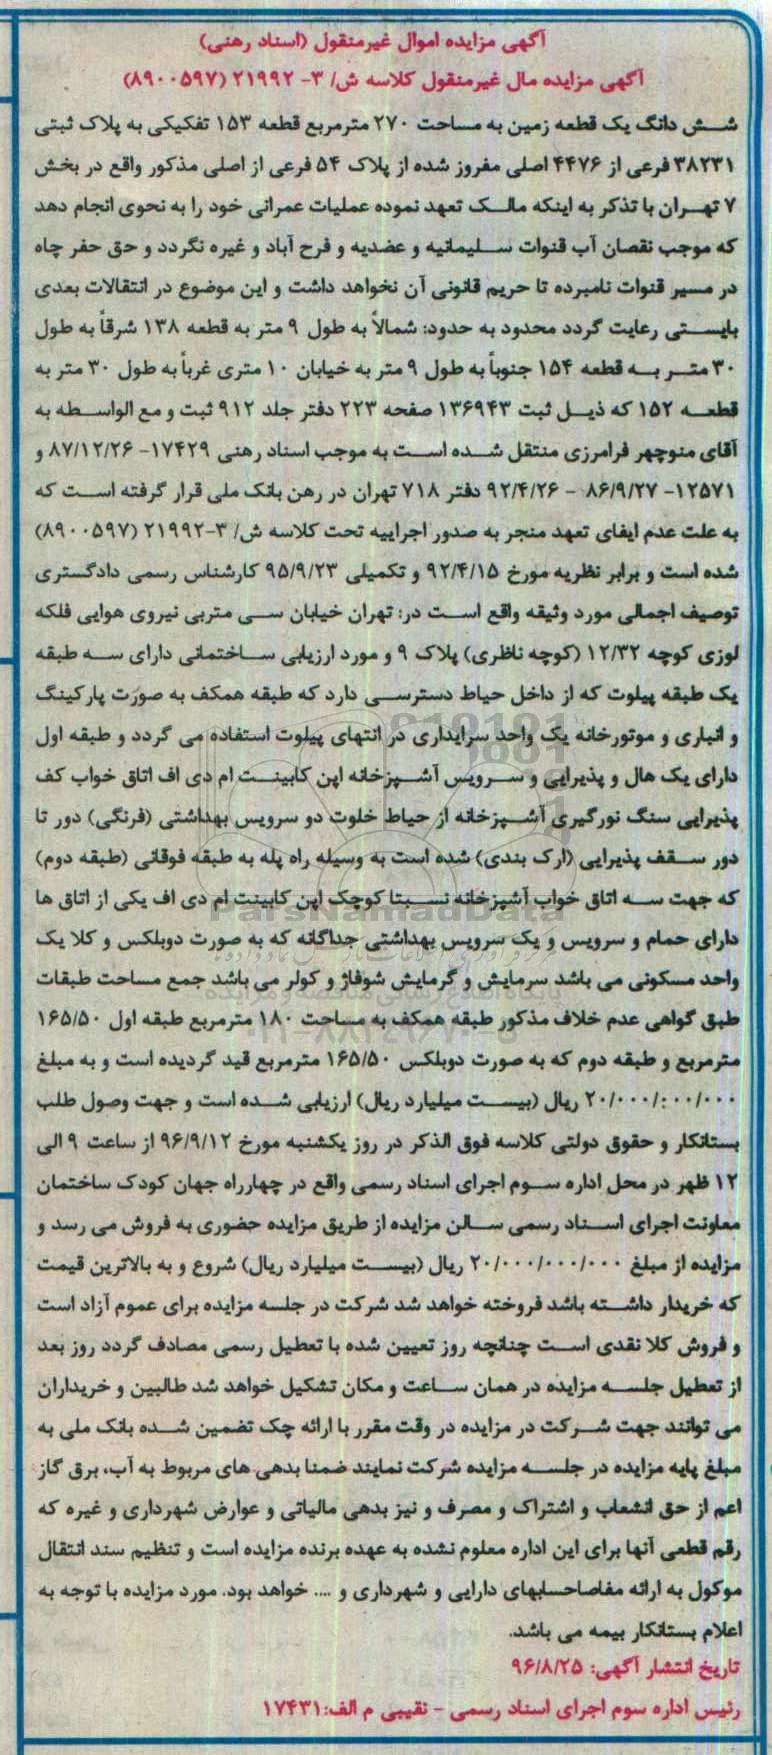 آگهی مزایده اموال غیرمنقول (اسناد رهنی)
آگهی مزایده مال غیرمنقول کلاسه ش/ ۳- ۲۱۹۹۲ (۸۹۰۰۵۹۷)
شـش دانگ یک قطعه زمین به مساحت ۲۷۰ مترمربع قطعه ۱۵۳ تفکیکی به پلاک ثبتی
۳۸۲۳۱ فرعی از ۴۴۷۶ اصلی مفروز شده از پلاک ۵۴ فرعی از اصلی مذکور واقع در بخش
۷ تهـران با تذکر به اینکه مالـک تعهد نموده عملیات عمرانی خود را به نحوی انجام دهد
که موجب نقصان آب قنوات سـلیمانیه و عضدیه و فرح آباد و غیره نگردد و حق حفر چاه
در مسیر قنوات نامبرده تا حریم قانونی آن نخواهد داشت و این موضوع در انتقالات بعدی
بایسـتی رعایت گردد محدود به حدود: شمالاً به طول ۹ متر به قطعه ۱۳۸ شرقاً به طول
۳۰ متـر بـه قطعه ۱۵۴ جنوباً به طول ۹ متر به خیابان ۱۰ متری غرباً به طول ۳۰ متر به
قطعـه ۱۵۲ که ذیـل ثبت ۱۳۶۹۴۳ صفحه ۲۲۳ دفتر جلد ۹۱۲ ثبت و مع الواسـطه به
آقای منوچهر فرامرزی منتقل شـده اسـت به موجب اسناد رهنی ۱۷۴۲۹- ۸۷/۱۲/۲۶ و
۱۲۵۷۱- ۸۶/۹/۲۷ - ۹۲/۴/۲۶ دفتر ۷۱۸ تهران در رهن بانک ملی قرار گرفته اسـت که
به علت عدم ایفای تعهد منجر به صدور اجراییه تحت کلاسه ش/ ۳-۲۱۹۹۲ (۸۹۰۰۵۹۷)
شده است و برابر نظریه مورخ ۹۲/۴/۱۵ و تکمیلی ۹۵/۹/۲۳ کارشناس رسمی دادگستری
توصیف اجمالی مورد وثیقه واقع اسـت در: تهران خیابان سـی متریی نیروی هوایی فلکه
لوزی کوچه ۱۲/۳۲ (کوچه ناظری) پلاک ۹ و مورد ارزیابی سـاختمانی دارای سـه طبقه
یک طبقه پیلوت که از داخل حیاط دسترسـی دارد که طبقه همکف به صورت پارکینگ
و انباری و موتورخانه یک واحد سرایداری در انتهای پیلوت استفاده می گردد و طبقه اول
دارای یک هال و پذیرایی و سـرویس آشـپزخانه اپن کابینـت ام دی اف اتاق خواب کف
پذیرایی سنگ نورگیری آشـپزخانه از حیاط خلوت دو سرویس بهداشتی (فرنگی) دور تا
دور سـقف پذیرایی (ارک بندی) شده است به وسیله راه پله به طبقه فوقانی (طبقه دوم)
که جهت سـه اتاق خواب آشپزخانه نسـبتا کوچک اپن کابینت ام دی اف یکی از اتاق ها
دارای حمام و سرویس و یک سرویس بهداشتی جداگانه که به صورت دوبلکس و کلا یک
واحد مسکونی می باشد سرمایش و گرمایش شوفاژ و کولر می باشد جمع مساحت طبقات
طبق گواهی عدم خلاف مذکور طبقه همکف به مساحت ۱۸۰ مترمربع طبقه اول ۱۶۵/۵۰
مترمربع و طبقه دوم که به صورت دوبلکس ۱۶۵/۵۰ مترمربع قید گردیده است و به مبلغ
۲۰/۰۰۰/۰۰۰/۰۰۰ ریال (بیسـت میلیارد ریال) ارزیابی شـده است و جهت وصول طلب
بستانکار و حقوق دولتی کلاسه فوق الذکر در روز یکشنبه مورخ ۹۶/۹/۱۲ از ساعت ۹ الی
۱۲ ظهر در محل اداره سـوم اجرای اسناد رسمی واقع در چهارراه جهان کودک ساختمان
معاونت اجرای اسـناد رسمی سـالن مزایده از طریق مزایده حضوری به فروش می رسد و
مزایده از مبلغ ۲۰/۰۰۰/۰۰۰/۰۰۰ ریال (بیسـت میلیارد ریال) شروع و به بالاترین قیمت
که خریدار داشـته باشد فروخته خواهد شد شرکت در جلسه مزایده برای عموم آزاد است
و فروش کلا نقدی اسـت چنانچه روز تعیین شده با تعطیل رسمی مصادف گردد روز بعد
از تعطیل جلسـه مزایده در همان سـاعت و مکان تشکیل خواهد شد طالبین و خریداران
می توانند جهت شـرکت در مزایده در وقت مقرر با ارائه چک تضمین شـده بانک ملی به
مبلغ پایه مزایده در جلسـه مزایده شرکت نمایند ضمنا بدهی های مربوط به آب، برق گاز
اعم از حق انشعاب و اشتراک و مصرف و نیز بدهی مالیاتی و عوارض شهرداری و غیره که
رقم قطعی آنها برای این اداره معلوم نشده به عهده برنده مزایده است و تنظیم سند انتقال
موکول به ارائه مفاصاحسابهای دارایی و شهرداری و .... خواهد بود. مورد مزایده با توجه به
اعلام بستانکار بیمه می باشد.
تاریخ انتشار آگهی: ۹۶/۸/۲۵
رئیس اداره سوم اجرای اسناد رسمی - نقیبی م الف:۱۷۴۳۱
ParsNamadData